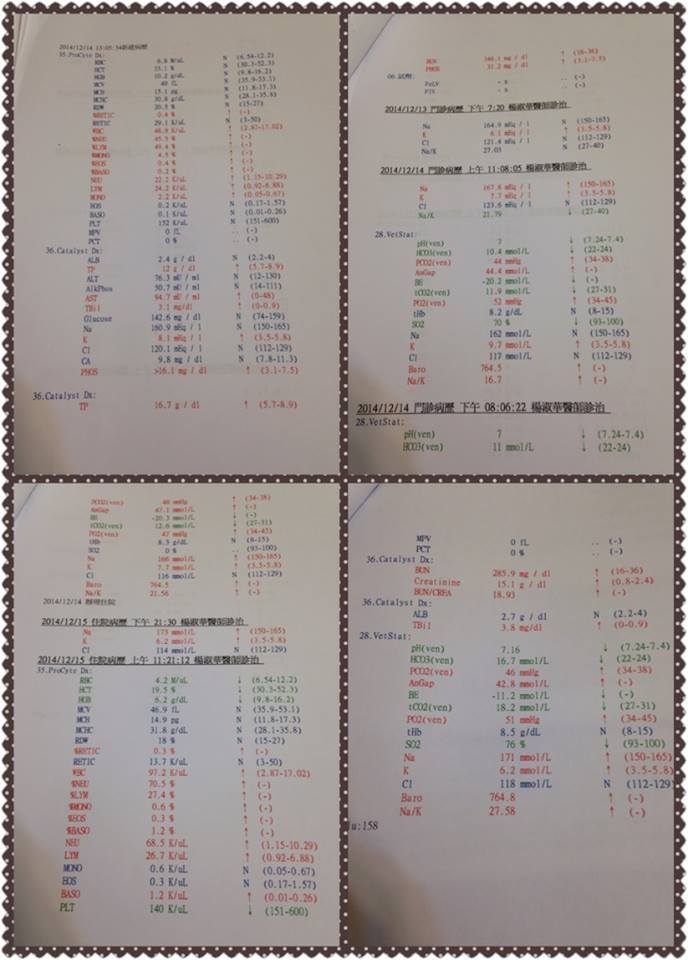 2014/12/14 13:05:34新建病歷
35.ProCyte Dx:
RBC 6.8 M/uL N (6.54-12.2)
HCT 33.1 % N (30.3-52.3)
HGB 10.2 g/dL N (9.8-16.2)
MCV 49 fL N (35.9-53.1)
MCH 15.1 pg N (11.8-17.3)
MCHC 30.8 g/dL N (28.1-35.8)
RDW 20.5 % N (15-27)
%RETIC 0.4 % ↑ (-)
RETIC 29.1 K/uL N (3-50)
WBC 48.9 K/uL ↑ (2.87-17.02)
%NEU 45.3 % ↑ (-)
%LYM 49.4 % ↑ (-)
%MONO 4.5 % ↑ (-)
%EOS 0.4 % ↑ (-)
%BASO 0.2 % ↑ (-)
NEU 22.2 K/uL ↑ (1.15-10.29)
LYM 24.2 K/uL ↑ (0.92-6.88)
MONO 2.2 K/uL ↑ (0.05-0.67)
EOS 0.2 K/uL N (0.17-1.57)
BASO 0.1 K/uL N (0.01-0.26)
PLT 152 K/uL N (151-600)
MPV 0 fL .. (-)
PCT 0 % .. (-)
36.Catalyst Dx:
ALB 2.4 g / dl N (2.2-4)
TP 12 g / dl ↑ (5.7-8.9)
ALT 76.3 mU / ml N (12-130)
AlkPhos 50.7 mU / ml N (14-111)
AST 94.7 mU / ml ↑ (0-48)
TBil 3.1 mg/dl ↑ (0-0.9)
Glucose 142.6 mg / dl N (74-159)
Na 160.9 mEq / l N (150-165)
K 8.1 mEq / l ↑ (3.5-5.8)
Cl 120.1 mEq / l N (112-129)
CA 9.8 mg / dl N (7.8-11.3)
PHOS >16.1 mg / dl ↑ (3.1-7.5)
36.Catalyst Dx:
TP 16.7 g / dl ↑ (5.7-8.9)
BUN 346.1 mg / dl ↑ (16-36)
PHOS 31.2 mg / dl ↑ (3.1-7.5)
06.試劑:
FeLV - n .. (-)
FIV - n .. (-)
2014/12/13 門診病歷 下午 7:20 楊淑華醫師診治
Na 164.9 mEq / l N (150-165)
K 6.1 mEq / l ↑ (3.5-5.8)
Cl 121.4 mEq / l N (112-129)
Na/K 27.03 N (27-40)
2014/12/14 門診病歷 上午 11:08:05 楊淑華醫師診治
Na 167.8 mEq / l ↑ (150-165)
K 7.7 mEq / l ↑ (3.5-5.8)
Cl 123.6 mEq / l N (112-129)
Na/K 21.79 ↓ (27-40)
28.VetStat:
pH(ven) 7 ↓ (7.24-7.4)
HCO3(ven) 10.4 mmol/L ↓ (22-24)
PCO2(ven) 44 mmHg ↑ (34-38)
AnGap 44.4 mmol/L ↑ (-)
BE -20.2 mmol/L ↓ (-)
tCO2(ven) 11.9 mmol/L ↓ (27-31)
PO2(ven) 52 mmHg ↑ (34-45)
tHb 8.2 g/dL N (8-15)
SO2 70 % ↓ (93-100)
Na 162 mmol/L N (150-165)
K 9.7 mmol/L ↑ (3.5-5.8)
Cl 117 mmol/L N (112-129)
Baro 764.5 ↑ (-)
Na/K 16.7 ↑ (-)
2014/12/14 門診病歷 下午 08:06:22 楊淑華醫師診治
28.VetStat:
pH(ven) 7 ↓ (7.24-7.4)
HCO3(ven) 11 mmol/L ↓ (22-24)
PCO2(ven) 46 mmHg ↑ (34-38)
AnGap 47.1 mmol/L ↑ (-)
BE -20.3 mmol/L ↓ (-)
tCO2(ven) 12.6 mmol/L ↓ (27-31)
PO2(ven) 47 mmHg ↑ (34-45)
tHb 8.3 g/dL N (8-15)
SO2 0 % .. (93-100)
Na 166 mmol/L ↑ (150-165)
K 7.7 mmol/L ↑ (3.5-5.8)
Cl 116 mmol/L N (112-129)
Baro 764.5 ↑ (-)
Na/K 21.56 ↑ (-)
2014/12/14 辦理住院
2014/12/15 住院病歷 下午 21:30 楊淑華醫師診治
Na 173 mmol/L ↑ (150-165)
K 6.2 mmol/L ↑ (3.5-5.8)
Cl 114 mmol/L N (112-129)
2014/12/15 住院病歷 上午 11:21:12 楊淑華醫師診治
35.ProCyte Dx:
RBC 4.2 M/uL ↓ (6.54-12.2)
HCT 19.5 % ↓ (30.3-52.3)
HGB 6.2 g/dL ↓ (9.8-16.2)
MCV 46.9 fL N (35.9-53.1)
MCH 14.9 pg N (11.8-17.3)
MCHC 31.8 g/dL N (28.1-35.8)
RDW 18 % N (15-27)
%RETIC 0.3 % ↑ (-)
RETIC 13.7 K/uL N (3-50)
WBC 97.2 K/uL ↑ (2.87-17.02)
%NEU 70.5 % ↑ (-)
%LYM 27.4 % ↑ (-)
%MONO 0.6 % ↑ (-)
%EOS 0.3 % ↑ (-)
%BASO 1.2 % ↑ (-)
NEU 68.5 K/uL ↑ (1.15-10.29)
LYM 26.7 K/uL ↑ (0.92-6.88)
MONO 0.6 K/uL N (0.05-0.67)
EOS 0.3 K/uL N (0.17-1.57)
BASO 1.2 K/uL ↑ (0.01-0.26)
PLT 140 K/uL ↓ (151-600)
MPV 0 fL .. (-)
PCT 0 % .. (-)
36.Catalyst Dx:
BUN 285.9 mg / dl ↑ (16-36)
Creatinine 15.1 g / dl ↑ (0.8-2.4)
BUN/CREA 18.93 ↑ (-)
36.Catalyst Dx:
ALB 2.7 g / dl N (2.2-4)
TBil 3.8 mg/dl ↑ (0-0.9)
28.VetStat:
pH(ven) 7.16 ↓ (7.24-7.4)
HCO3(ven) 16.7 mmol/L ↓ (22-24)
PCO2(ven) 46 mmHg ↑ (34-38)
AnGap 42.8 mmol/L ↑ (-)
BE -11.2 mmol/L ↓ (-)
tCO2(ven) 18.2 mmol/L ↓ (27-31)
PO2(ven) 51 mmHg ↑ (34-45)
tHb 8.5 g/dL N (8-15)
SO2 76 % ↓ (93-100)
Na 171 mmol/L ↑ (150-165)
K 6.2 mmol/L ↑ (3.5-5.8)
Cl 118 mmol/L N (112-129)
Baro 764.8 ↑ (-)
Na/K 27.58 ↑ (-)
u:158